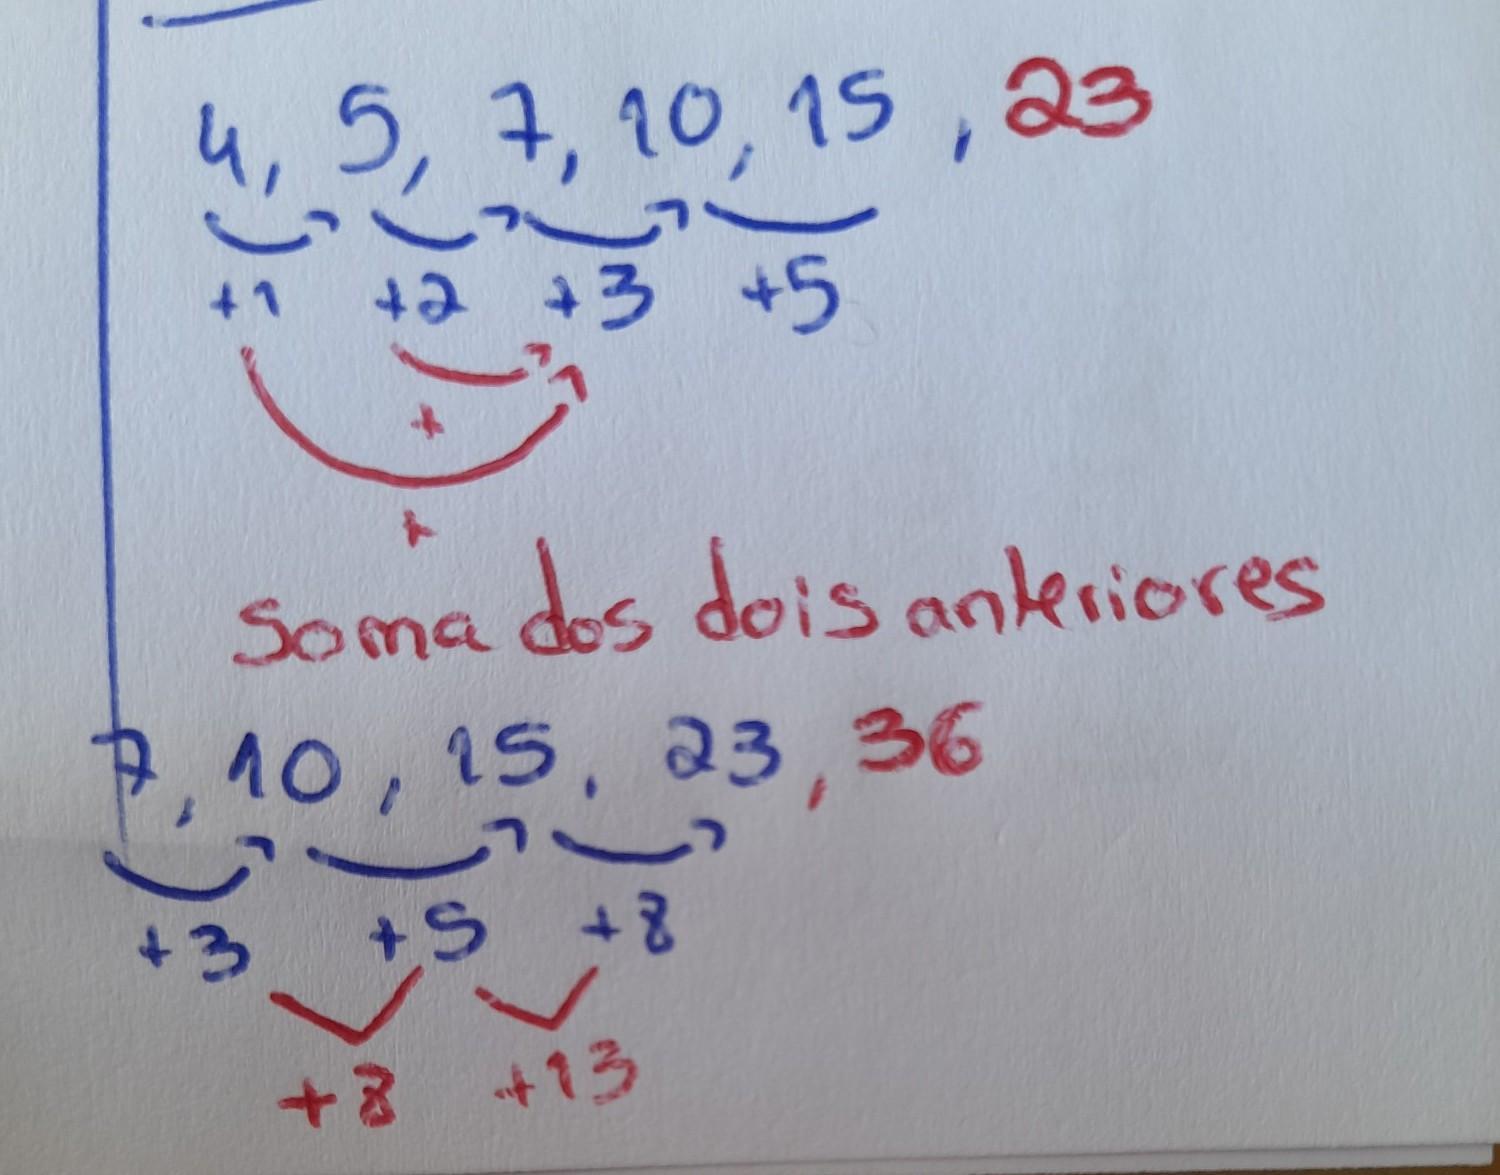 4, 5, 7, 10, 15, 23
+1 +2 +3 +5
+
+
Soma dos dois anteriores
7, 10, 15, 23, 36
+3 +5 +8
+8 +13